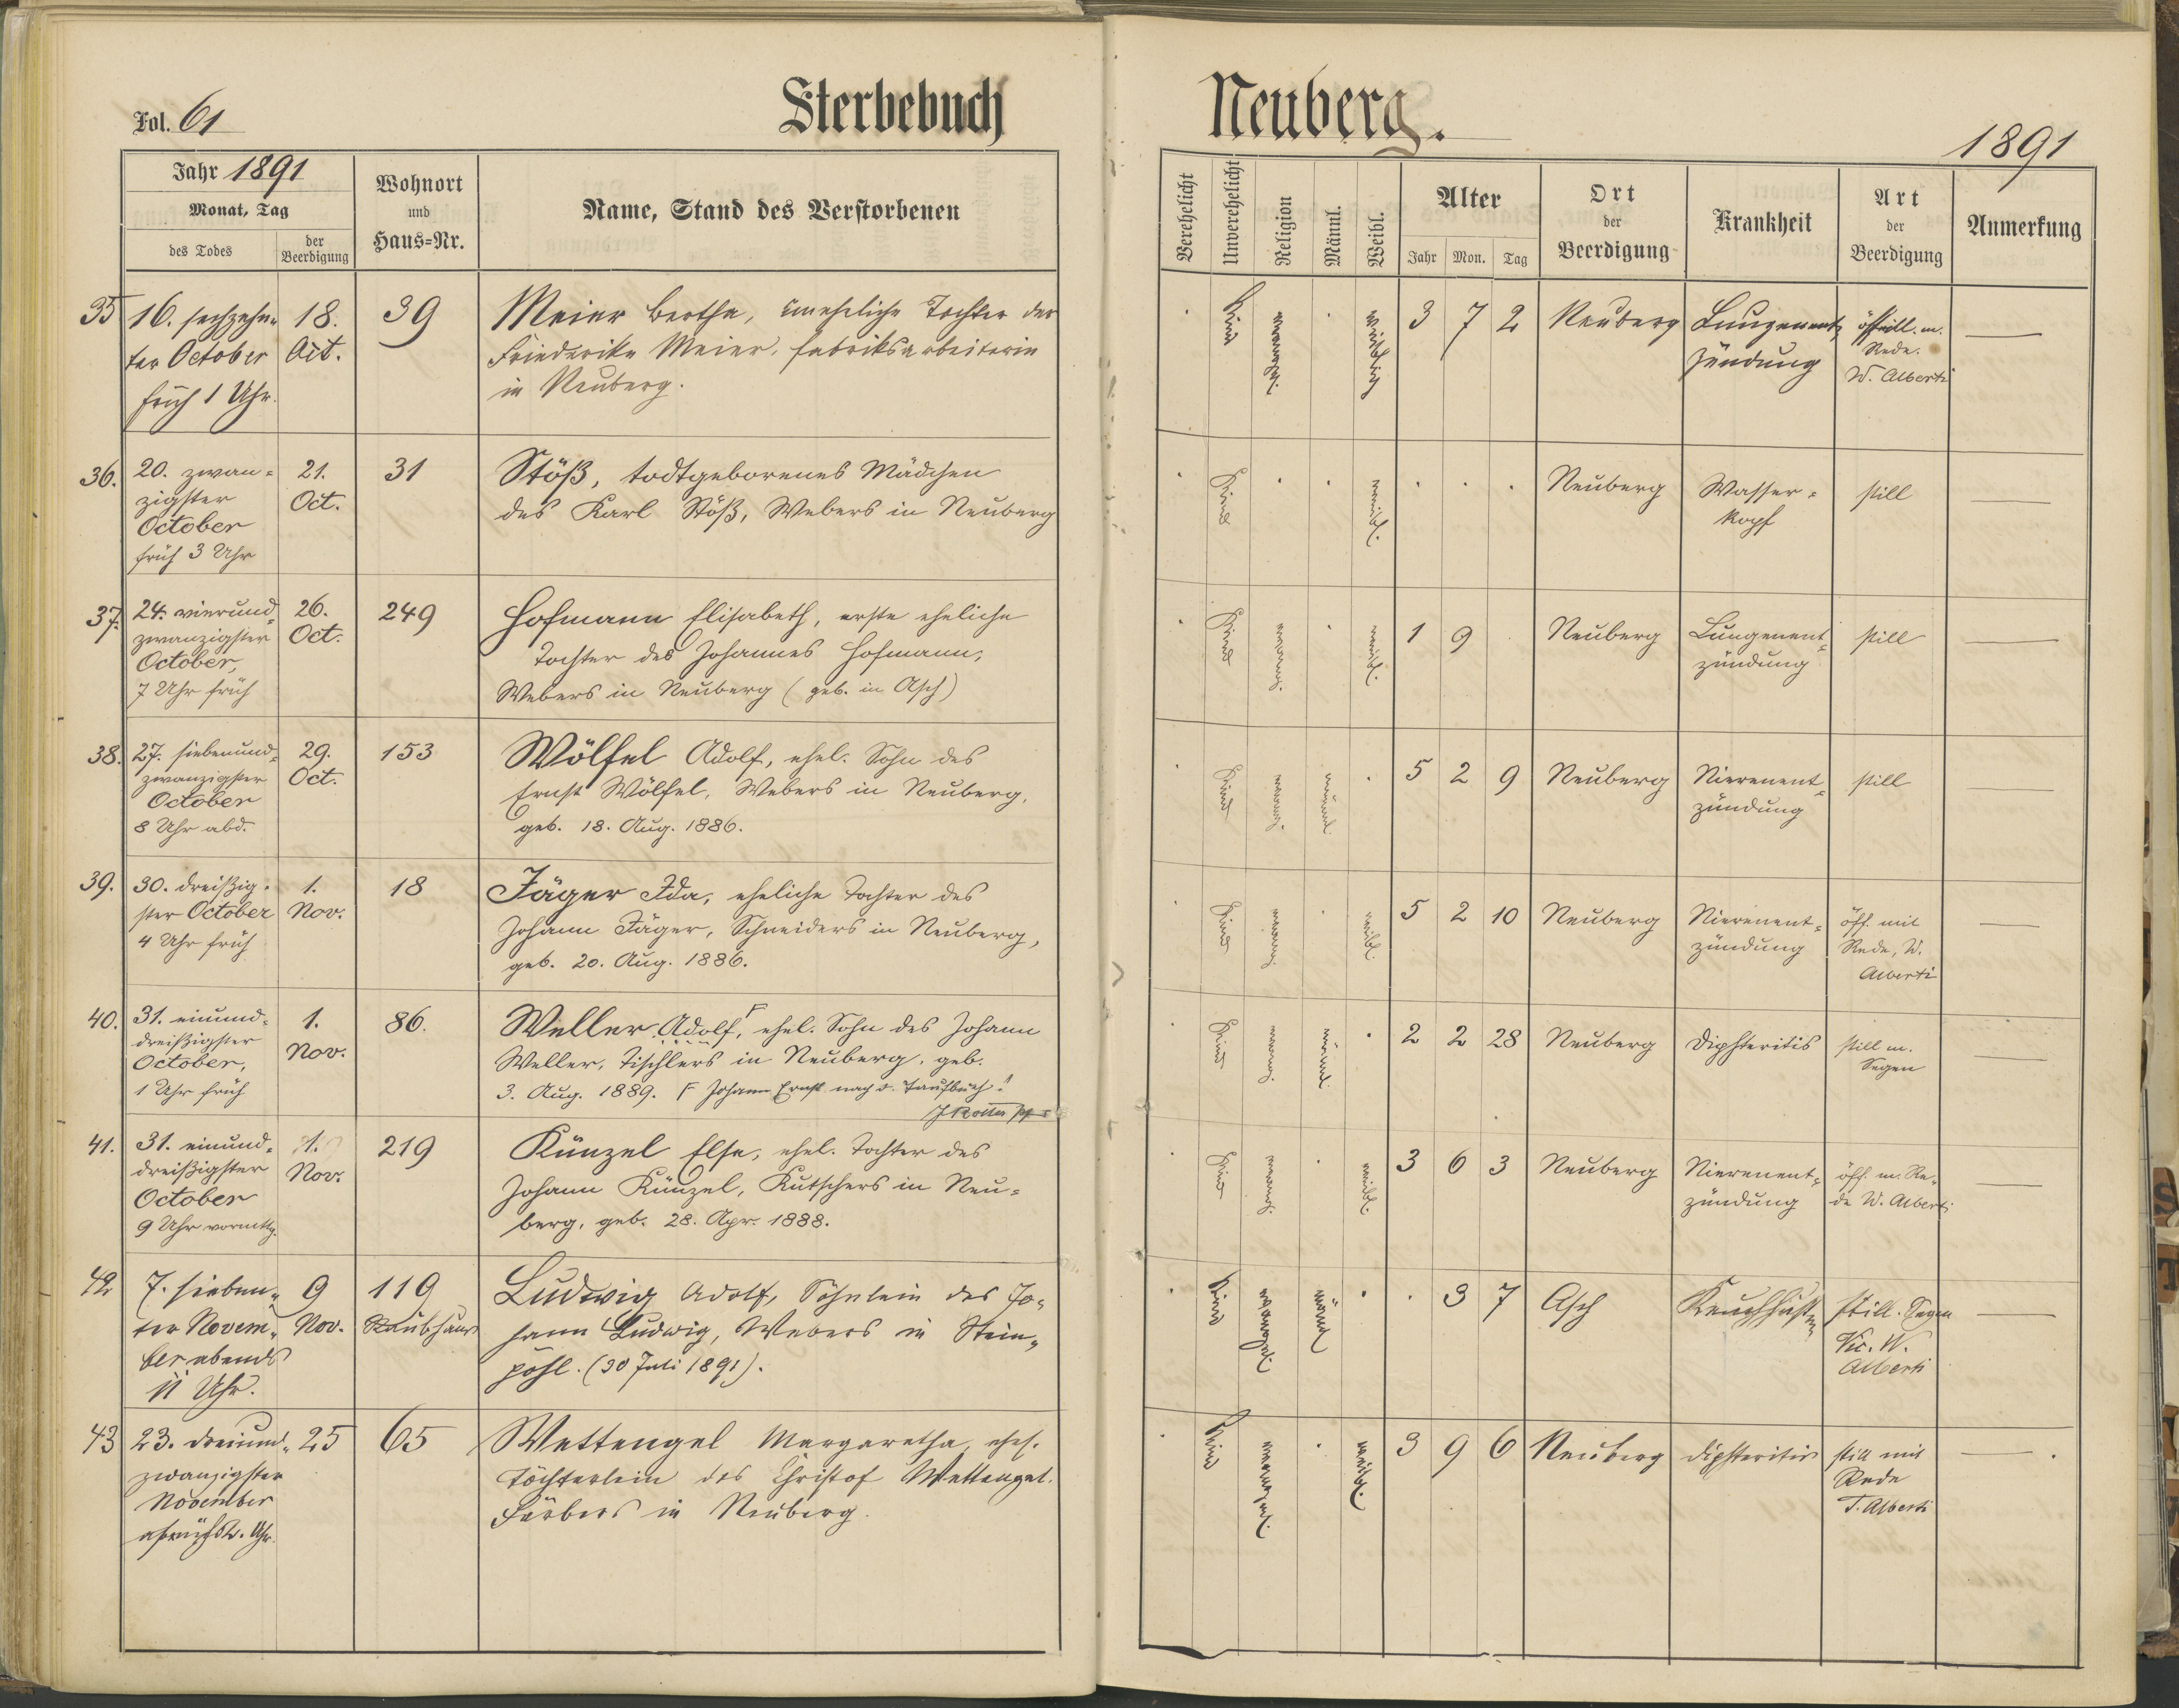 Fol. 61
Sterbebuch
Neuberg.
1891
Jahr 1891
Monat, Tag
des Todes
der Beerdigung
Wohnort
und
Haus=Nr.
Name, Stand des Verstorbenen
Verehelicht
Unverehelicht
Religion
Männl.
Weibl.
Alter
Jahr Mon. Tag
Ort
der
Beerdigung
Krankheit
Art
der
Beerdigung
Anmerkung
35
16. sechzehn-
ter October
früh 1 Uhr.
18.
Oct.
39
Meier Bertha, uneheliche Tochter der
Friederike Meier, Fabriksarbeiterin
in Neuberg.
Kind
evangel.
weiblich
3 7 2
Neuberg
Lungenent
zündung
Rede.
W. Alberti
36.
20. zwan=
zigster
October
früh 3 Uhr
21.
Oct.
31
Stöß, todtgeborenes Mädchen
des Karl Stöß, Webers in Neuberg
Kind
weibl.
Neuberg
Wasser=
kopf
still
37.
24. vierund=
zwanzigster
October,
7 Uhr früh
26.
Oct.
249
Hofmann Elisabeth, erste eheliche
Tochter des Johannes Hofmann,
Webers in Neuberg (geb. in Asch)
Kind
evang.
weibl.
1 9
Neuberg
Lungenent=
zündung
still
38.
27. siebenund=
zwanzigster
October
8 Uhr abd.
29.
Oct.
153
Wölfel Adolf, ehel. Sohn des
Ernst Wölfel, Webers in Neuberg,
geb. 18. Aug. 1886.
Kind
evang.
männl.
5 2 9
Neuberg
Nierenent=
zündung
still
39.
30. dreißig=
ster October
4 Uhr früh
1.
Nov.
18
Jäger Ida, eheliche Tochter des
Johann Jäger, Schneiders in Neuberg,
geb. 20. Aug. 1886.
Kind
evang.
weibl.
5 2 10
Neuberg
Nierenent=
zündung
öff. mit
Rede, W.
Alberti
40.
31. einund=
dreißigster
October,
1 Uhr früh
1.
Nov.
86.
Weller Adolf, F ehel. Sohn des Johann
Weller, Tischlers in Neuberg, geb.
3. Aug. 1889. F Johann Ernst nach d. Taufbuch!
Kind
evang.
männl.
2 2 28
Neuberg
Diphteritis
still m.
Segen
41.
31. einund=
dreißigster
October
9 Uhr vormttg.
1.
Nov.
219
Künzel Elsa, ehel. Tochter des
Johann Künzel, Kutschers in Neu=
berg, geb. 28. Apr. 1888.
Kind
evang.
weibl.
3 6 3
Neuberg
Nierenent=
zündung
öff. m. Re=
de W. Alberti
42
7. sieben=
ter Novem=
ber abends
11 Uhr.
9
Nov.
119
Ludwig Adolf, Söhnlein des Jo=
hann Ludwig, Webers in Stein=
pöhl. (30 Juli 1891).
Kind
evangel.
männl
3 7
Asch
Keuchhusten
still. Segen
Vic. W.
Alberti
43
23. dreiund=
zwanzigster
November
25
65
Wettengel Margaretha, ehel.
Töchterlein des Christof Wettengel.
Färbers in Neuberg.
Kind
evangel.
weibl.
3 9 6
Neuberg
Diphteritis
still mit
Rede
T. Alberti